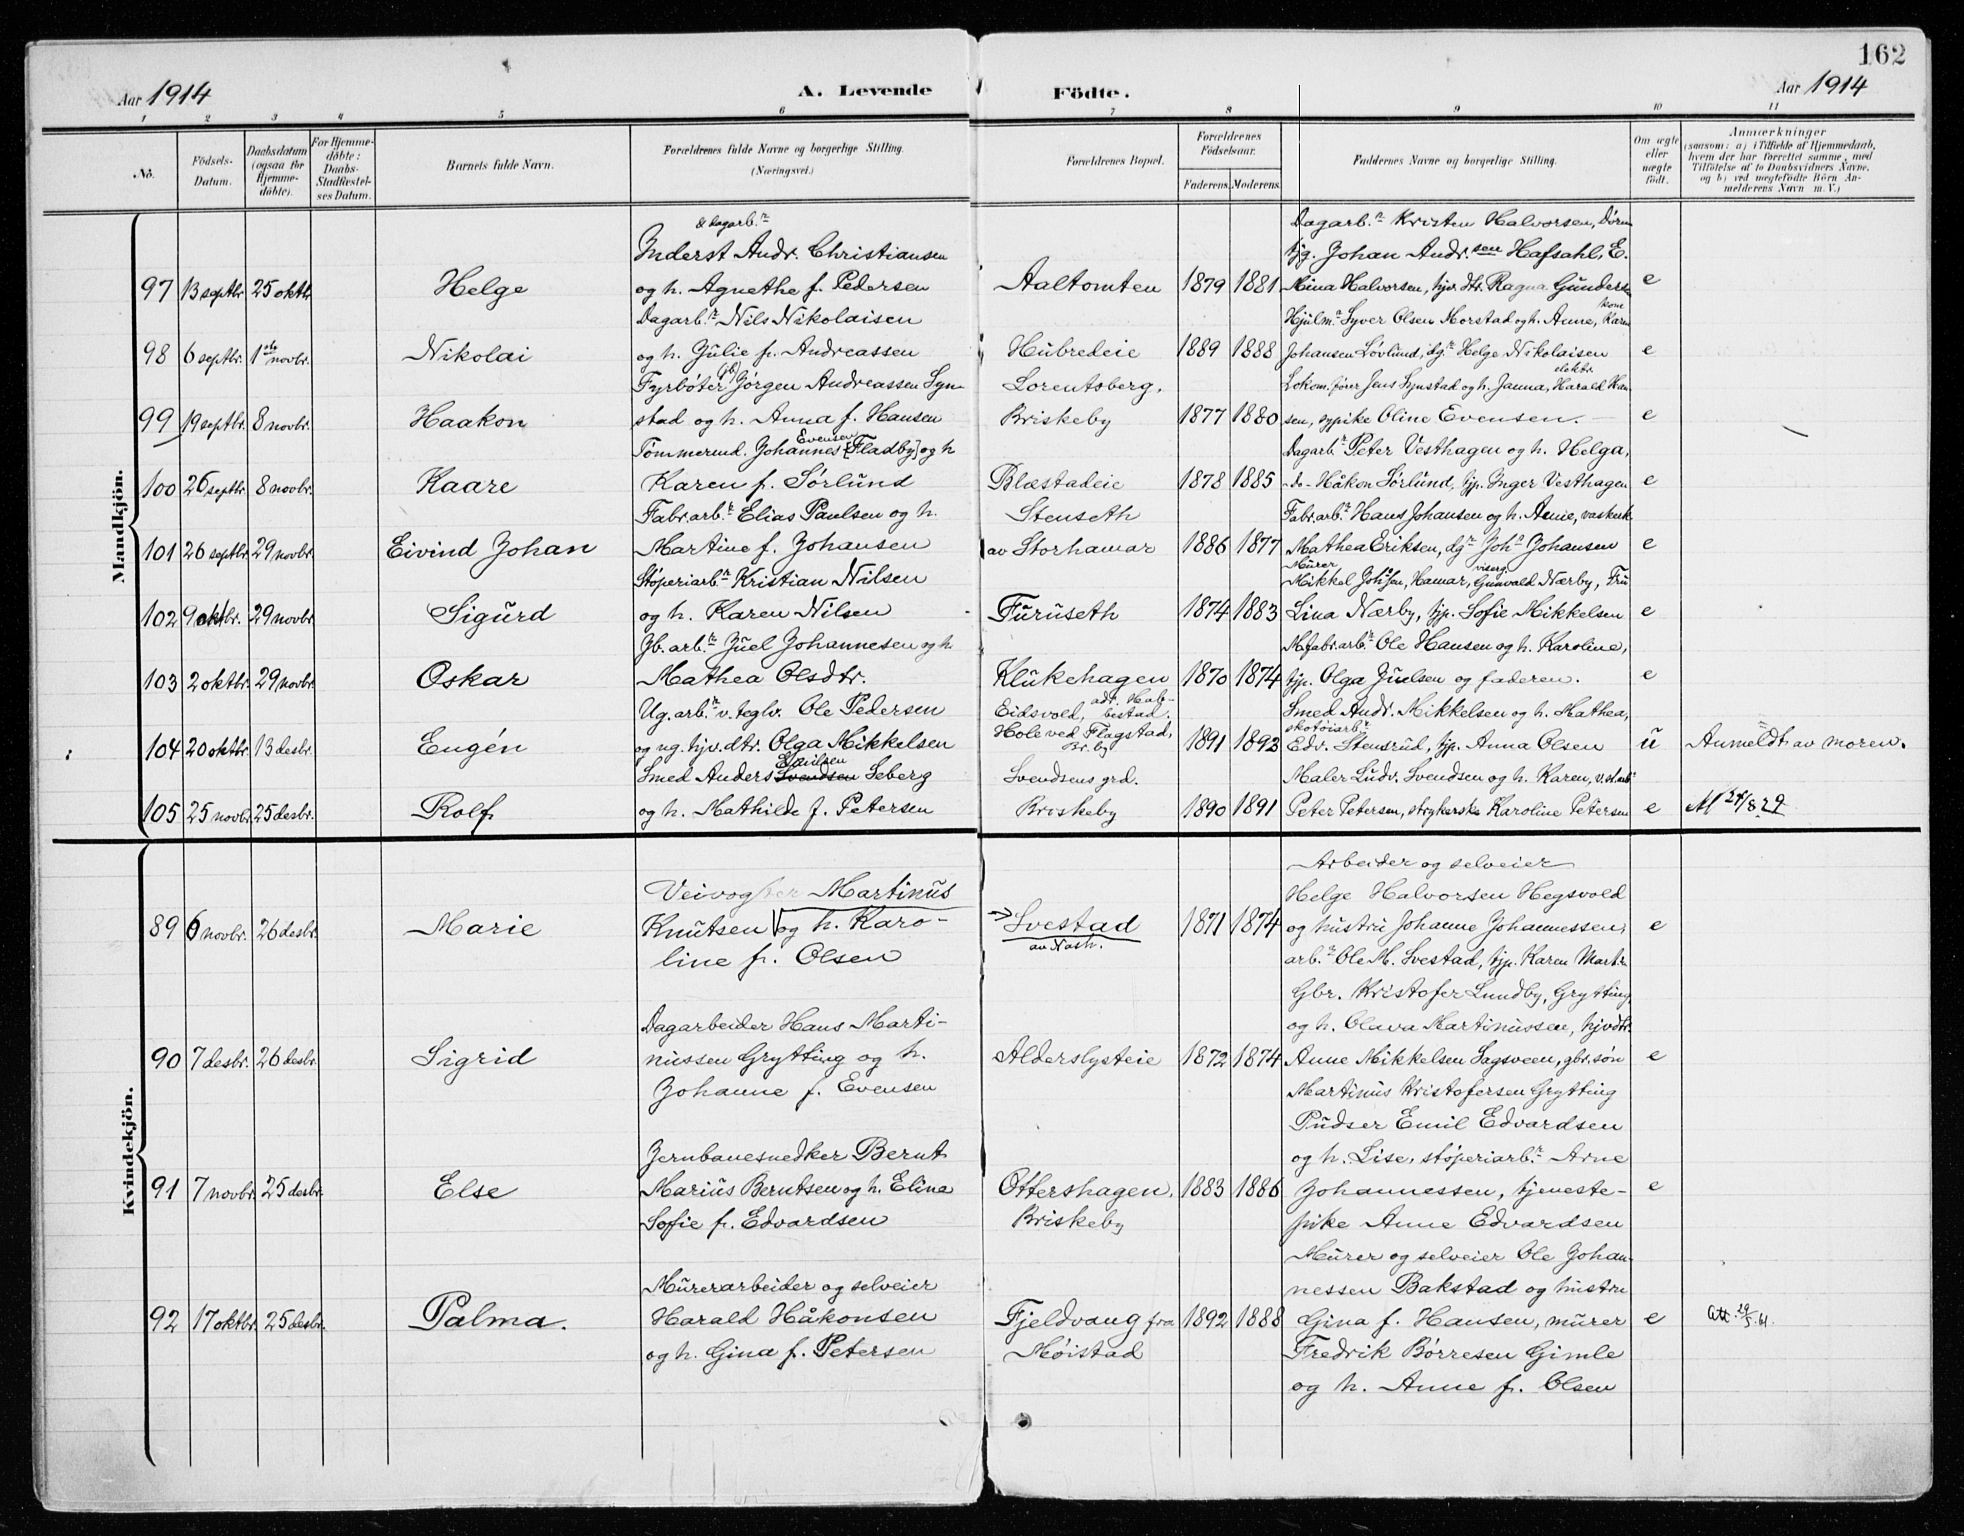 162
Aar 1914
A. Levende
Födte.
Aar 1914
1 2 3 4 5 6 7 8 9 10 11
No.
Födsels-Datum.
Daabsdatum (ogsaa for Hjemme-döbte).
For Hjemme-döbte: Daabs-Stadfæstel-ses Datum.
Barnets fulde Navn.
Forældrenes fulde Navne og borgerlige Stilling. (Næringsvei.)
Forældrenes Bopæl.
Forældrenes Födselsaar.
Faderens. Moderens.
Faddernes Navne og borgerlige Stilling.
Om ægte eller uægte födt.
Anmærkninger
(saasom: a) i Tilfælde af Hjemmedaab, hvem der har forrettet samme, med Tilföielse af to Daabsvidners Navne, og b) ved uægtefödte Börn An-melderens Navn m. V.)
Mandkjön.
& dagarb.r
Inderst Andr. Christiansen
97 13 septbr. 25 oktbr. Helge og h. Agnethe f. Pedersen Aaltomten 1879 1881
Dagarb.r Kristen Halvorsen,
tjg. Johan Andr.sen Hafsahl, E.
Mina Halvorsen, hjv. dtr. Ragna Gundersen e
Dagarb.r Nils Nikolaisen
98 6 septbr. 1ste novbr. Nikolai og h. Julie f. Andreassen Hubredeie 1889 1888
Hjulm.r Syver Olsen Morstad og h. Anne, kone Karen
Johansen Lövlund, dgr Helge Nikolaisen e
Fyrbøter (jb) Jørgen Andreassen Syn-
99 19 septbr. 8 novbr. Haakon stad og h. Anna f. Hansen
Lorentsberg,
Briskeby 1877 1880
Lokom.fører Jens Synstad og h. Janna, elektr. Harald Han
sen, sypike Oline Evensen. e
Tømmermd. Johannes Evensen [Fladby] og h
100 26 septbr. 8 novbr. Kaare Karen f. Sørlund Blæstadeie 1878 1885
Dagarb.r Peter Vesthagen og h. Helga,
-do- Håkon Sørlund, tjp. Inger Vesthagen e
Fabr.arb.r Elias Paulsen og h.
101 26 septbr. 29 novbr. Eivind Johan Martine f. Johansen
Stenseth
av Storhamar 1886 1877
Fabr.arb.r Hans Johansen og h. Anne, vaskerk
Mathea Eriksen, dgr Joh.n Johansen e
Støperiarb.r Kristian Nilsen
102 9 oktbr. 29 novbr. Sigurd og h. Karen Nilsen Furuseth 1874 1883
Murer Mikkel Johsen, Hamar, viserg. Gunvald Nærby, Fru
Lina Nærby, tjp. Sofie Mikkelsen e
Jb. arb.r Juel Johannesen og h
103 2 oktbr. 29 novbr. Oskar Mathea Olsdtr. Klukehagen 1870 1874
M.fabr.arb.r Ole Hansen og h. Karoline,
tjp. Olga Juelsen og faderen. e
Ug. arb.r v. teglv. Ole Pedersen
104 20 oktbr. 13 desbr. Eugén og ug. hjv. dtr. Olga Mikkelsen
Eidsvold,
Hole ved Flagstad, 1891 1892
Smed Andr. Mikkelsen og h. Mathea,
skotøiarb.r
Edv. Stensrud, tjp. Anna Olsen u Anmeldt av moren.
Smed Anders Paulsen Svendsen Seberg
105 25 novbr. 25 desbr. Rolf og h. Mathilde f. Petersen
Svendsens grd.
Briskeby 1890 1891
Maler Ludv. Svendsen og h. Karen,
Peter Petersen, strykerske Karoline Petersen e M 24/8 29
Kvindekjön.
Veivogter Martinus
89 6 novbr. 26 desbr. Marie Knutsen og h. Karo-
line f. Olsen
Svestad
av Nash. 1871 1874
Arbeider og selveier
Helge Halvorsen Hegsvold
og hustru Johanne Johannessen, e
arb.r Ole M. Svestad, tjp. Karen Martin
Dagarbeider Hans Marti-
90 7 desbr. 26 desbr. Sigrid nussen Grytting og h.
Johanne f. Evensen
Alderslysteie 1872 1874
Gbr. Kristofer Lundby, Grytting
og h. Olava Martinussen, hjvdtr.
Anne Mikkelsen Sagsveen, gbr.søn e
Martinus Kristofersen Grytting
Jernbanesnedker Bernt
91 7 novbr. 25 desbr. Else Marius Berntsen og h. Elina
Sofie f. Edvardsen
Ottershagen,
Briskeby 1883 1886
Pudser Emil Edvardsen
og h. Lise, støperiarb.r Arne
Johannessen, tjeneste- e
pike Anne Edvardsen
Murerarbeider og selveier
92 17 oktbr. 25 desbr. Palma. Harald Håkonsen
og h. Gina f. Petersen
Fjeldvang fra
Møistad 1892 1888
Murer og selveier Ole Johan-
nessen Bakstad og hustru
Gina f. Hansen, murer e Att. 29/5.61.
Fredrik Börresen Gimle
og h. Anne f. Olsen